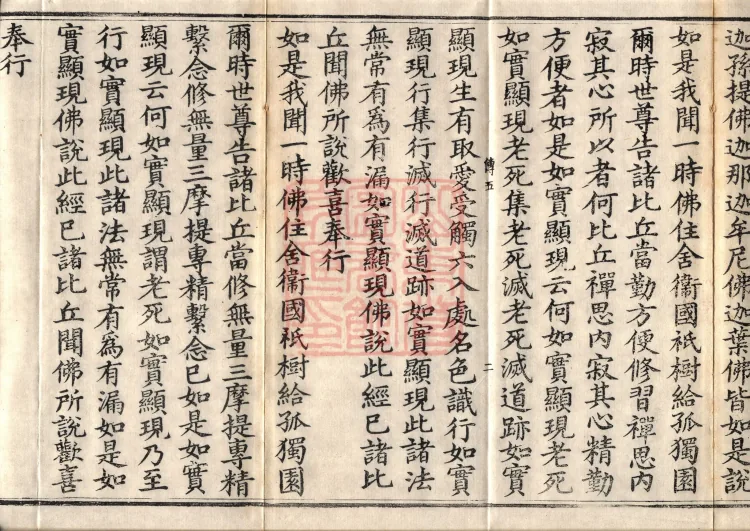 迦孫提佛迦那迦牟尼佛迦葉佛皆如是說
如是我聞一時佛住舍衞國祇樹給孤獨園
爾時世尊告諸比丘當勤方便修習禪思內
寂其心所以者何比丘禪思內寂其心精勤
方便者如是如實顯現云何如實顯現老死
如實顯現老死集老死滅老死滅道跡如實
傅五
二
顯現生有取愛受觸六入處名色識行如實
顯現行集行滅行滅道跡如實顯現此諸法
無常有為有漏如實顯現佛說此經已諸比
丘聞佛所說歡喜奉行
如是我聞一時佛住舍衞國祇樹給孤獨園
爾時世尊告諸比丘當修無量三摩提專精
繫念修無量三摩提專精繫念已如是如實
顯現云何如實顯現謂老死如實顯現乃至
行如實顯現此諸法無常有為有漏如是如
實顯現佛說此經已諸比丘聞佛所說歡喜
奉行